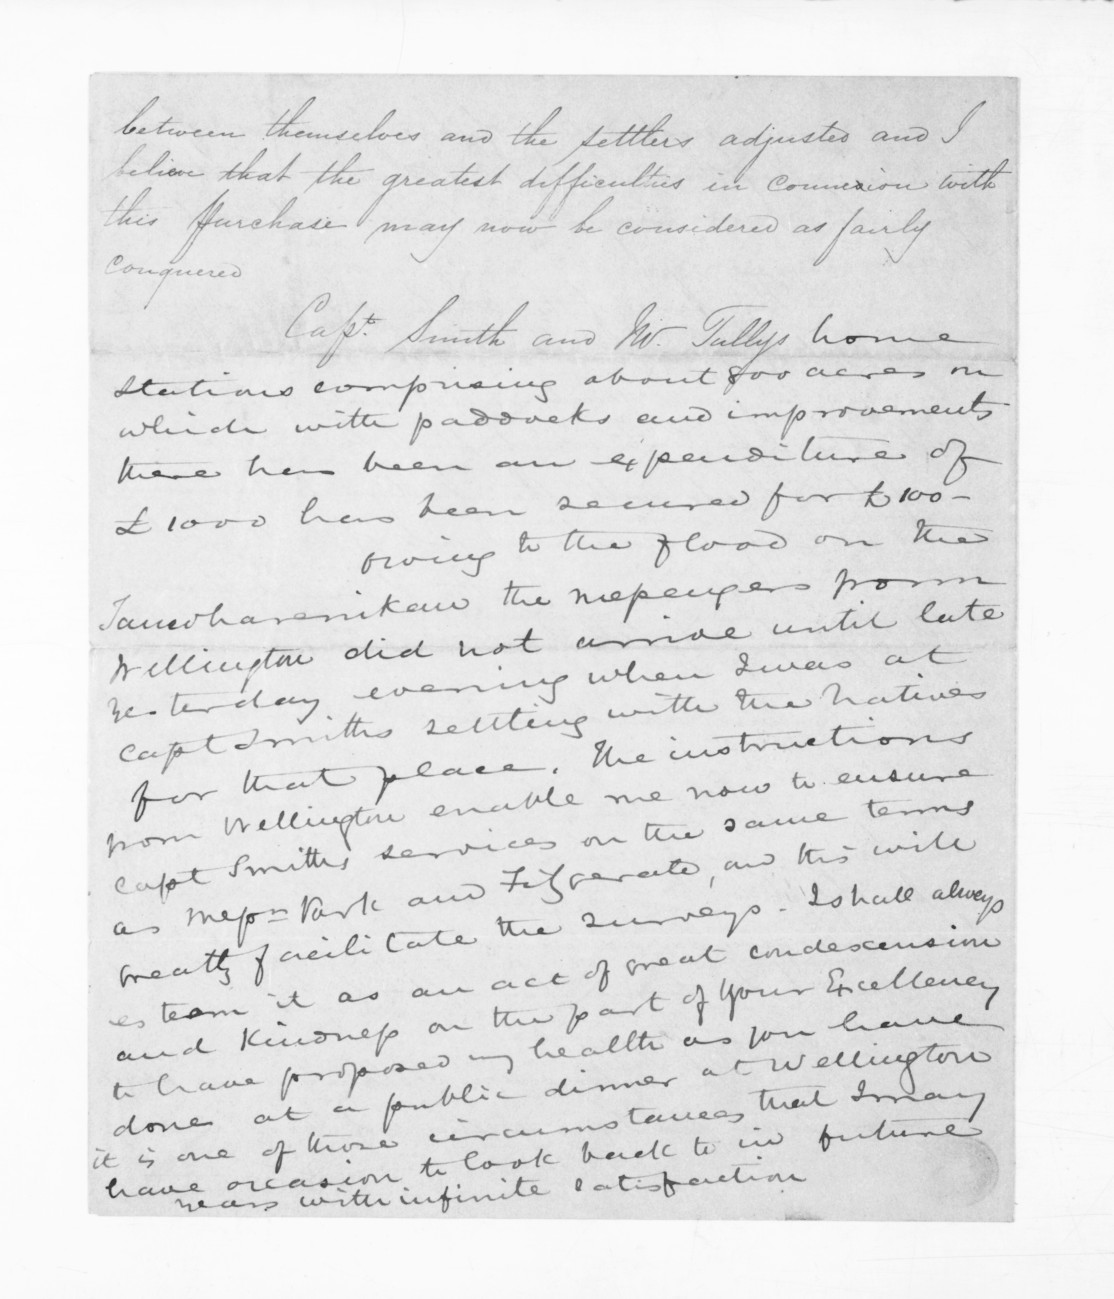 between themselves and the settlers adjusted and I
believe that the greatest difficulties in connexion with
this purchase may now be considered as fairly
conquered
Capt. Smith and Mr. Tullys home
stations comprising about 800 acres on
which with paddocks and improvements
there has been an expenditure of
£1000 has been secured for £100-
owing to the flood on the
Tauwharenikau the messengers from
Wellington did not arrive until late
yesterday evening when I was at
Capt Smiths settling with the Natives
for that place. The instructions
from Wellington enable me now to ensure
Capt Smiths services on the same terms
as Messrs Park and Fitzgerald, and this will
greatly facilitate the surveys. I shall always
esteem it as an act of great condescension
and Kindness on the part of your Excellency
to have proposed my health as you have
done at a public dinner at Wellington
it is one of those circumstances that I may
have occasion to look back to in future
years with infinite satisfaction